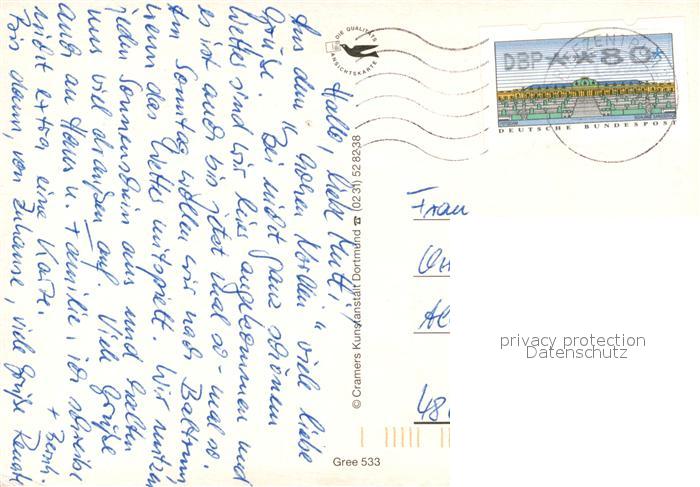 Hallo, liebe Mutti!
Aus dem "hohen Norden" viele liebe
Grüße. Bei nicht ganz schönem
Wetter sind wir hier angekommen und
es ist auch bis jetzt mal so - mal so.
Am Sonntag wollen wir nach Baltrum,
wenn das Wetter mitspielt. Wir nutzen
jeden Sonnenschein aus und halten
uns viel draußen auf. Viele Grüße
auch an Haus u. Familie, ich schreibe
nicht extra eine Karte.
Bis dann, von Zuhause, viele Grüße Renate
+ Bernh.
DIE QUALITÄTS
ANSICHTSKARTE
© Cramers Kunstanstalt Dortmund ☎ (0231) 528238
DBP **80*
DEUTSCHE BUNDESPOST
Frau
48
Gree 533
privacy protection
Datenschutz